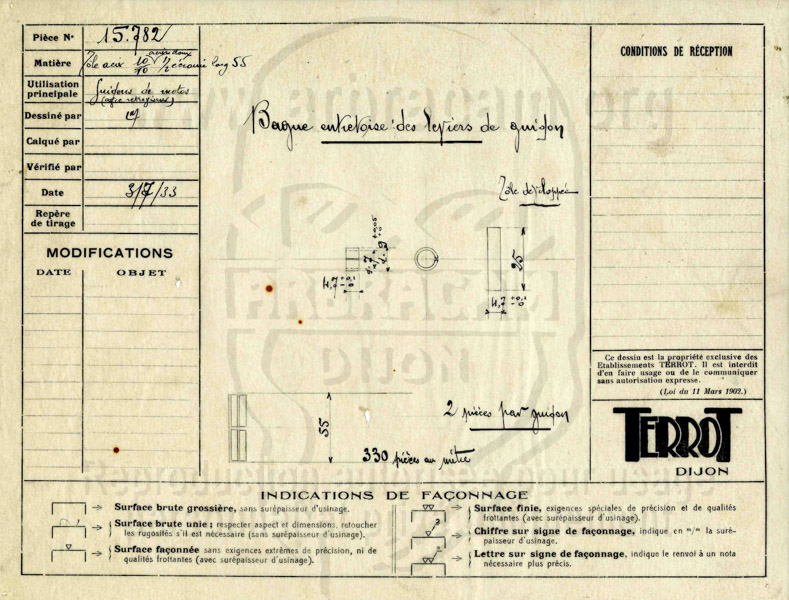 Pièce N° 15.782
Matière Tôle aux 10/10 acier doux 1/2 écroui long 55
Utilisation principale Guidons de motos
Dessiné par
Calqué par
Vérifié par
Date 3/7/33
Repère de tirage
MODIFICATIONS
DATE OBJET
Bague entretoise des leviers de guidon
Tôle développée
+0,05
-0
7
9
4,7 +0,1 -0
25
4,7 +0,1 -0
55
2 pièces par guidon
330 pièces au mètre
CONDITIONS DE RÉCEPTION
Ce dessin est la propriété exclusive des
Etablissements TERROT. Il est interdit
d'en faire usage ou de le communiquer
sans autorisation expresse.
(Loi du 11 Mars 1902.)
TERROT
DIJON
INDICATIONS DE FAÇONNAGE
Surface brute grossière, sans surépaisseur d'usinage.
Surface brute unie ; respecter aspect et dimensions, retoucher
les rugosités s'il est nécessaire (sans surépaisseur d'usinage).
Surface façonnée sans exigences extrêmes de précision, ni de
qualités frottantes (avec surépaisseur d'usinage).
Surface finie, exigences spéciales de précision et de qualités
frottantes (avec surépaisseur d'usinage).
3
Chiffre sur signe de façonnage, indique en m/m la suré-
paisseur d'usinage.
Lettre sur signe de façonnage, indique le renvoi à un nota
nécessaire plus précis.
www.arbracam.org
ARBRACAM
DIJON